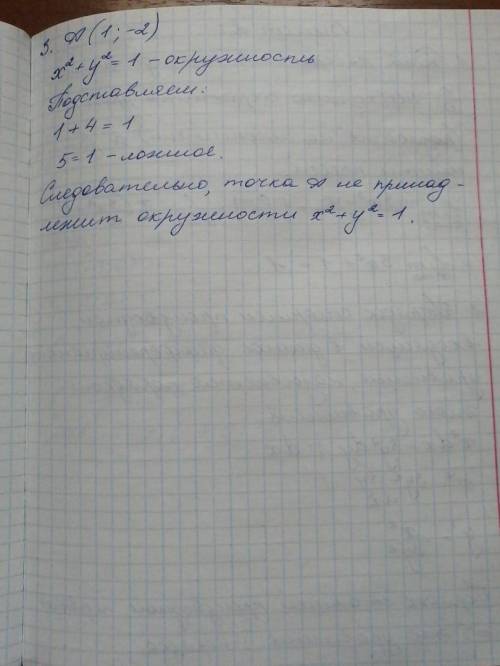 3. A (1; -2)
x² + y² = 1 - окружность
Подставляем:
1 + 4 = 1
5 = 1 - ложное.
Следовательно, точка A не принад-
лежит окружности x² + y² = 1.